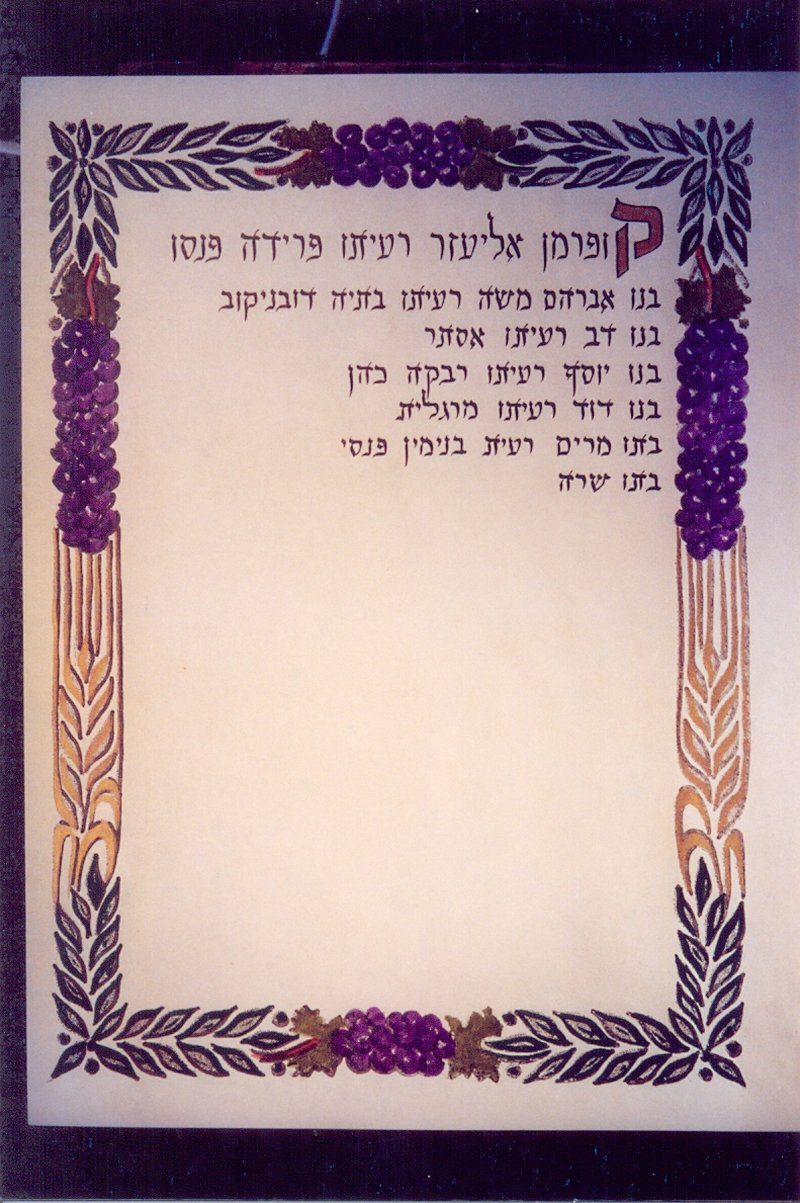 קופרמן אליעזר רעיתו פרידה פנסו
בנו אברהם משה רעיתו בתיה דובניקוב
בנו דב רעיתו אסתר
בנו יוסף רעיתו רבקה כהן
בנו דוד רעיתו מרגלית
בתו מרים רעית בנימין פנסי
בתו שרה